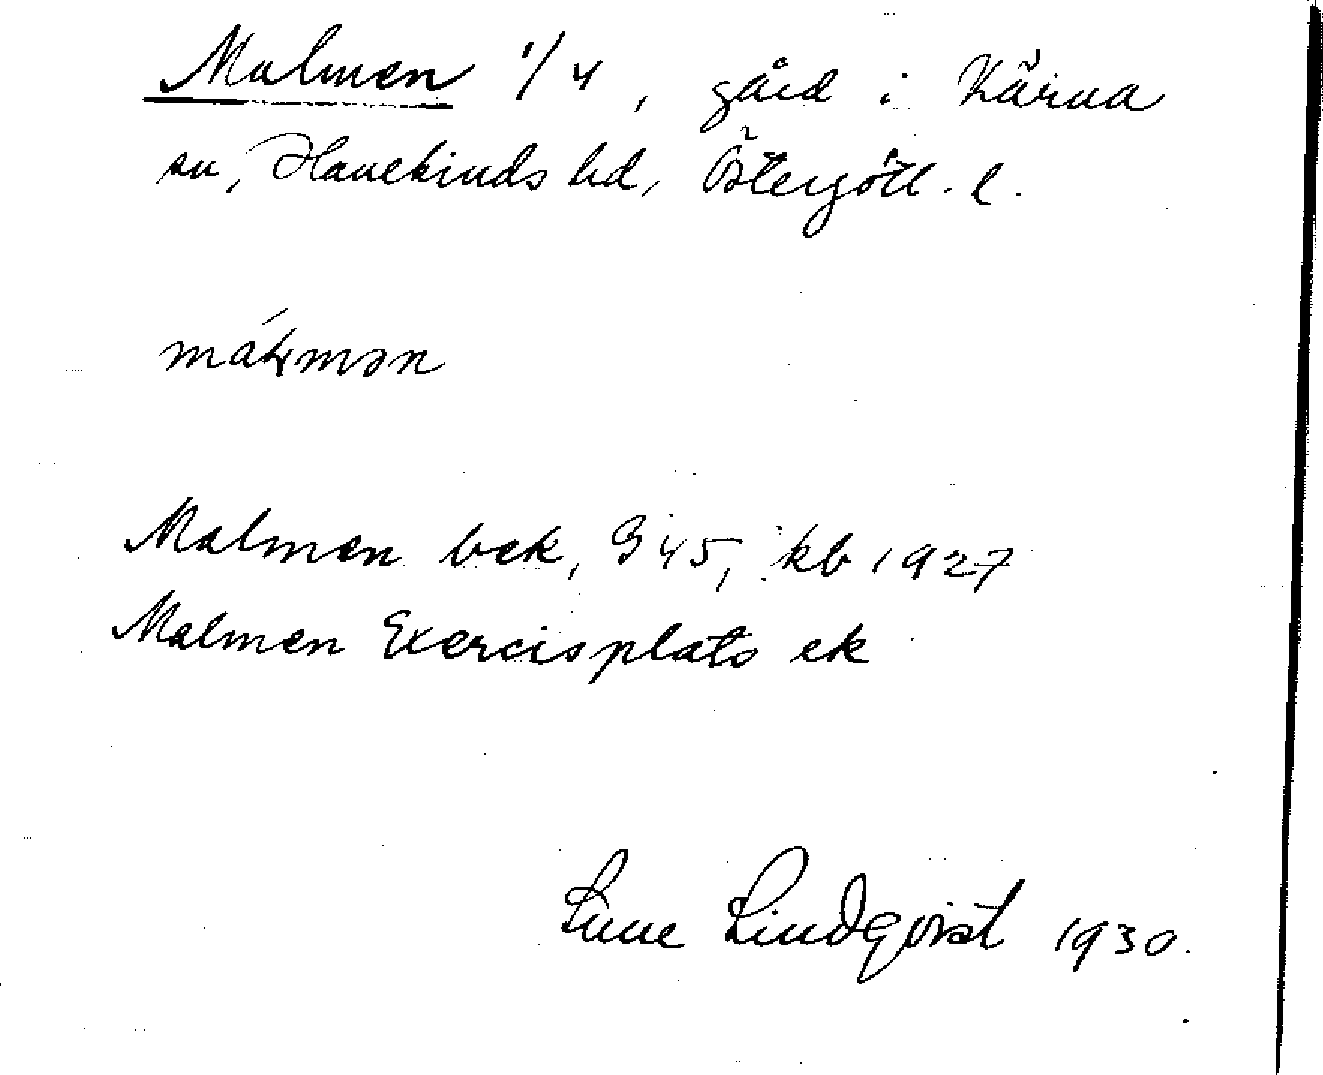 Malmen 1/4, gård i Kärna
sn, Hanekinds hd, Östergötl. l.
Malmen bek, G 45, kb 1927
Malmen Exercisplats ek
Sune Lindqvist 1930.